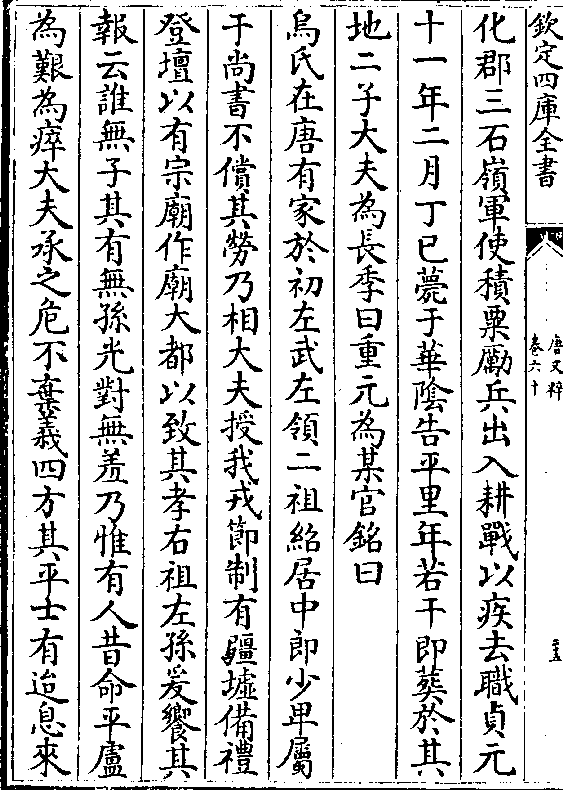 欽定四庫全書
唐文粹
卷六十
三五
化郡三石嶺軍使積粟勵兵出入耕戰以疾去職貞元
十一年二月丁巳薨于華陰告平里年若干即葬於其
地二子大夫為長季曰重元為某官銘曰
烏氏在唐有家於初左武左領二祖紹居中郎少卑屬
于尚書不償其勞乃相大夫授我戎節制有疆墟備禮
登壇以有宗廟作廟大都以致其孝右祖左孫爰饗其
報云誰無子其有無孫光對無羞乃惟有人昔命平盧
為艱為瘁大夫承之危不棄義四方其平士有迨息來